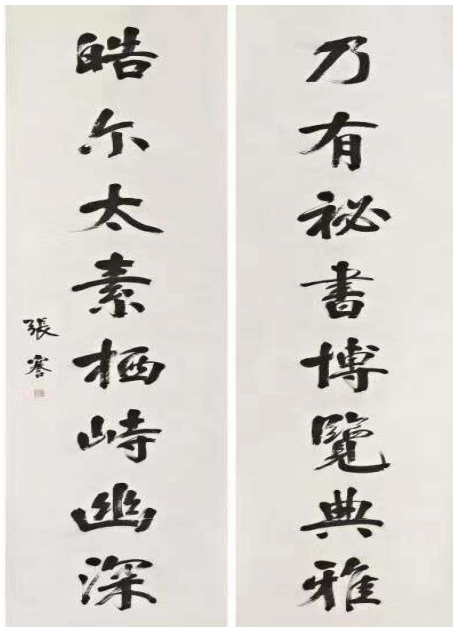 乃有祕書博覽典雅
皓尔太素栖峙幽深
張謇